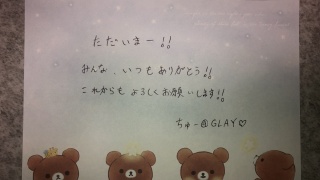 ただいまー!!
みんな、いつもありがとう!!
これからも よろしくお願いします!!
ちゅー@GLAY♡